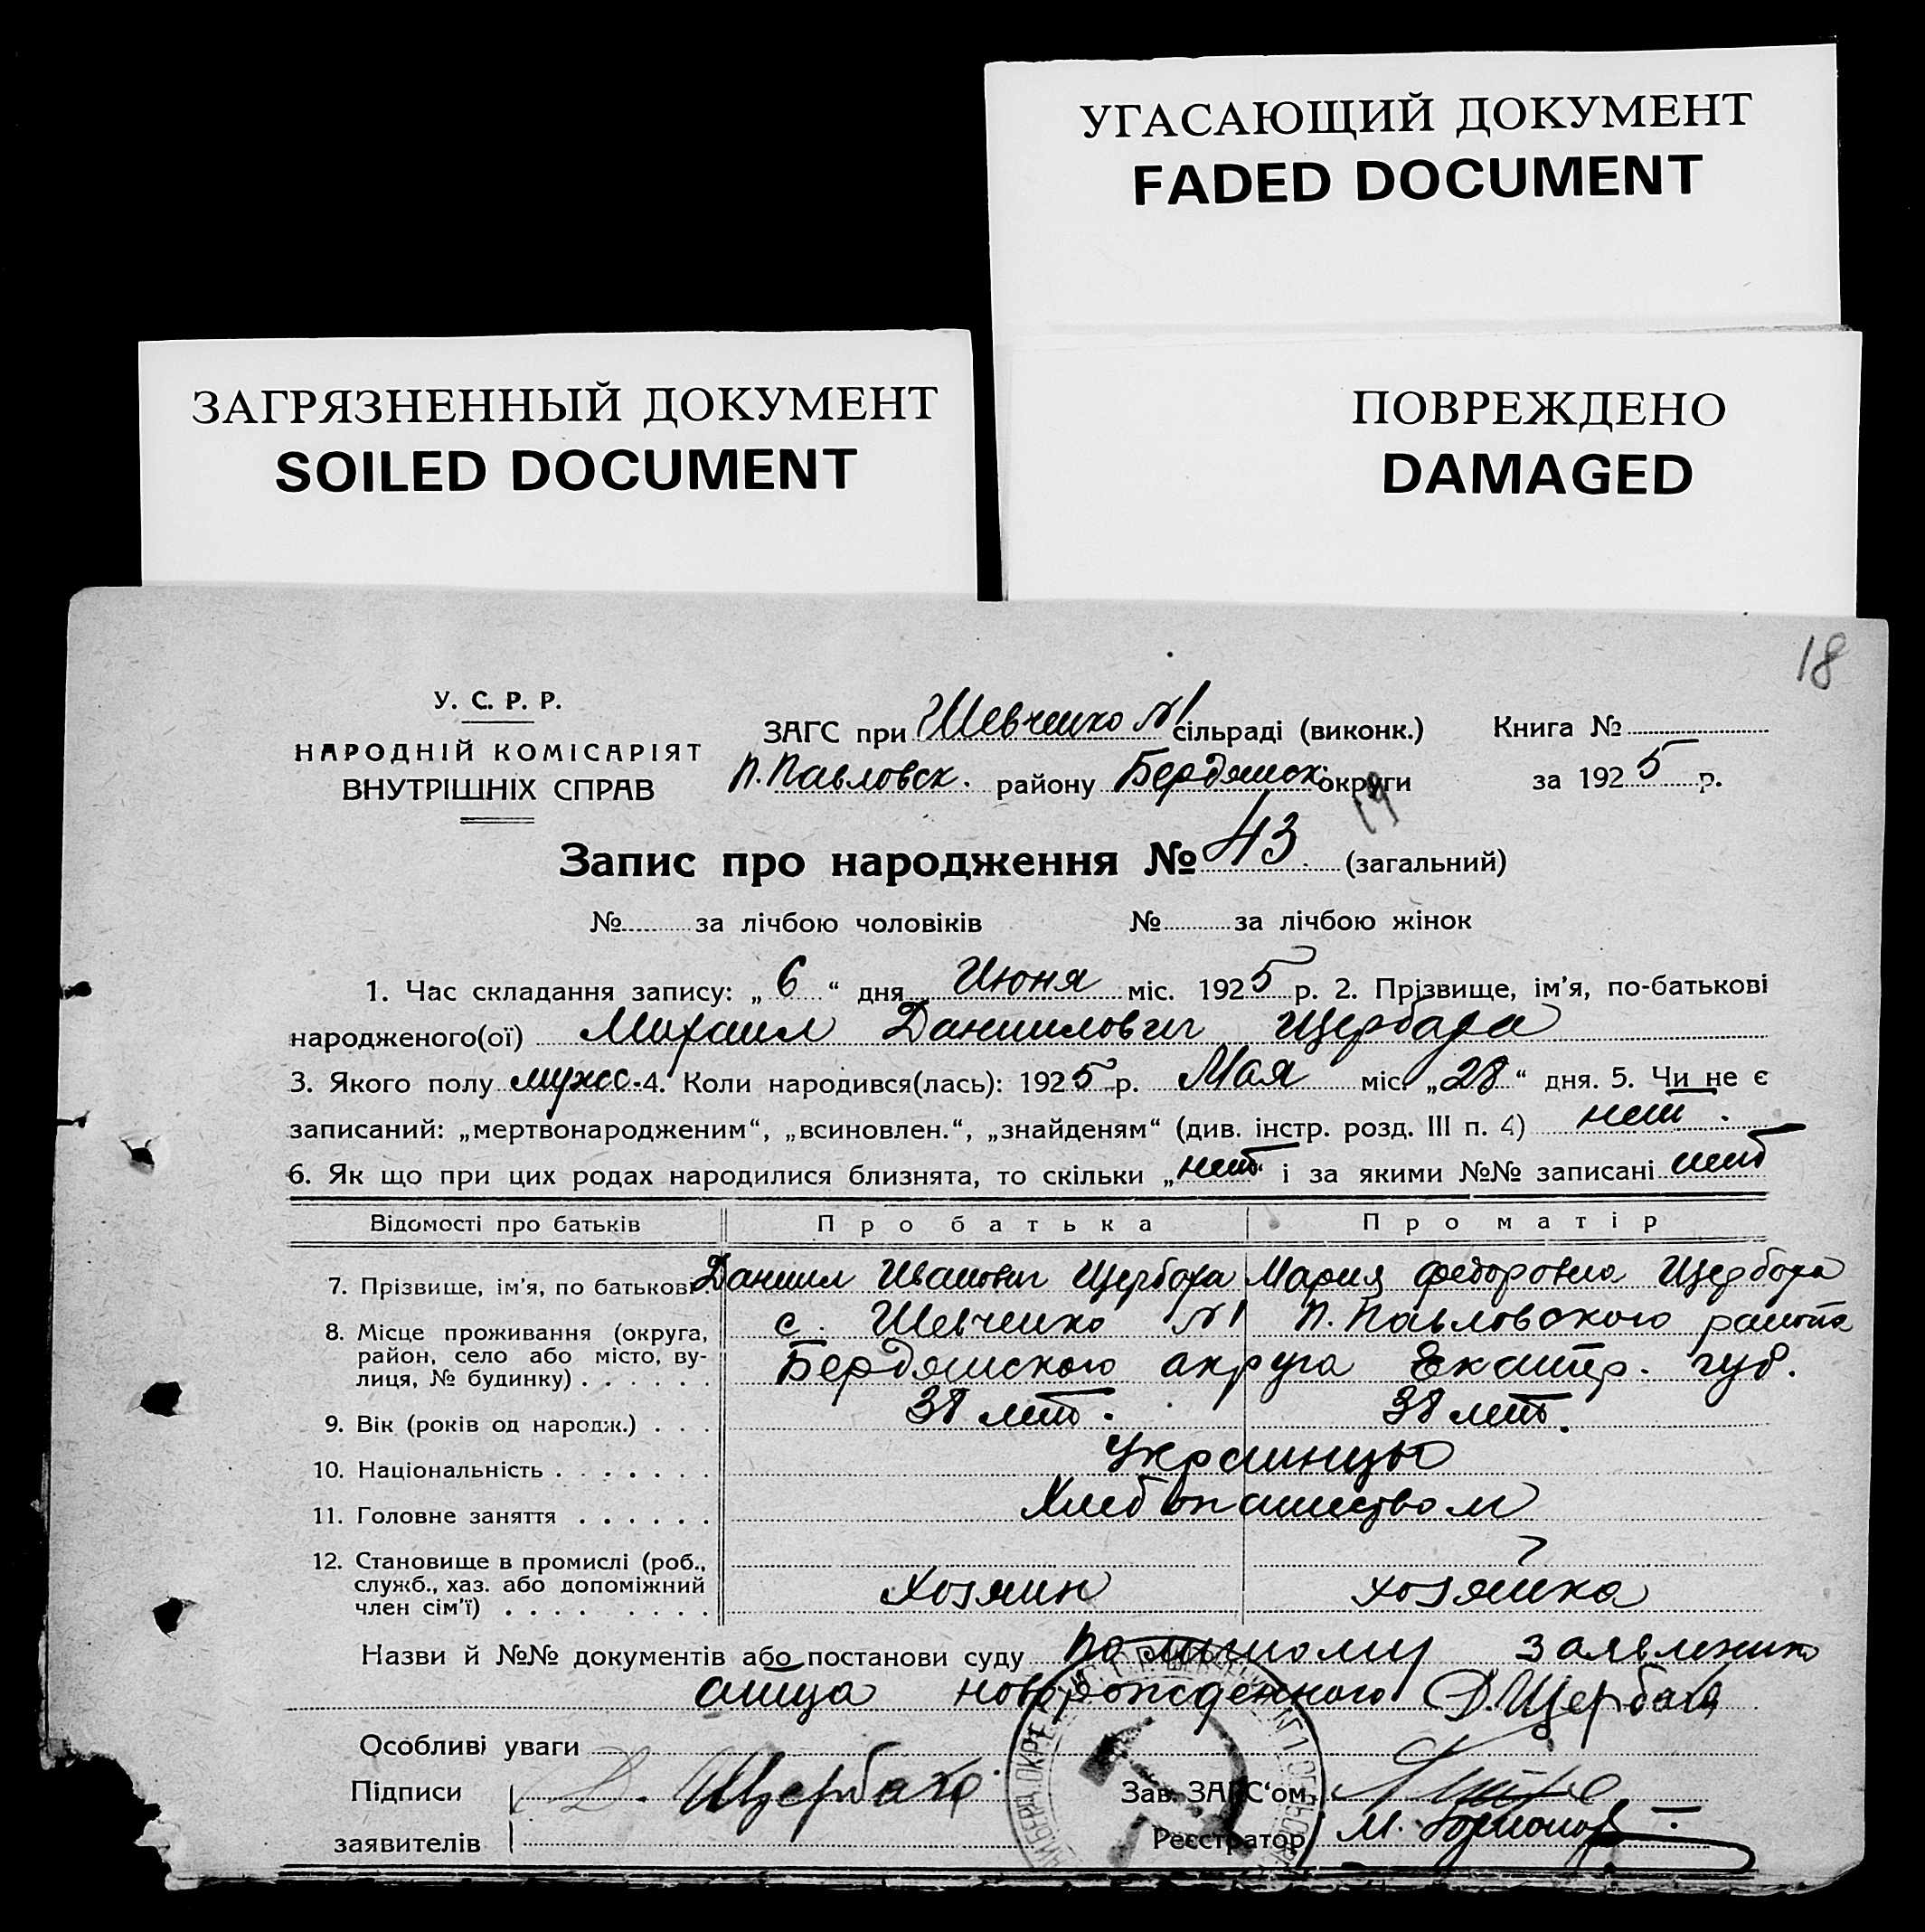 УГАСАЮЩИЙ ДОКУМЕНТ
FADED DOCUMENT
ЗАГРЯЗНЕННЫЙ ДОКУМЕНТ
SOILED DOCUMENT
ПОВРЕЖДЕНО
DAMAGED
18
У. С. Р. Р.
НАРОДНІЙ КОМІСАРІЯТ
ВНУТРІШНІХ СПРАВ
ЗАГС при Шевченко №1 сільраді (виконк.) Книга №
П. Павловск. району Бердянск. округи за 1925 р.
19
Запис про народження № 43 (загальний)
№ за лічбою чоловіків № за лічбою жінок
1. Час складання запису: „ 6 “ дня Июня міс. 1925 р. 2. Прізвище, ім’я, по-батькові
народженого(ої) Михаил Даниилович Щербаха
3. Якого полу мужс. 4. Коли народився(лась): 1925 р. Мая міс. „ 28 “ дня. 5. Чи не є
записаний: „мертвонародженим“, „всиновлен.“, „знайденям“ (див. інстр. розд. III п. 4) нет.
6. Як що при цих родах народилися близнята, то скільки „ нет і за якими №№ записані нет
Відомості про батьків Про батька Про матір
7. Прізвище, ім’я, по батькові . Даниил Иванович Щербаха Мария Федоровна Щербаха
8. Місце проживання (округа, с. Шевченко №1 П. Павловского района
район, село або місто, ву-
лиця, № будинку) . . . . . . Бердянского округа Екатер. губ.
9. Вік (років од народж.) . . . 38 лет. 38 лет.
10. Національність . . . . . . . Украинцы
11. Головне заняття . . . . . . Хлебопашеством
12. Становище в промислі (роб.,
служб., хаз. або допоміжний Хозяин хозяйка
член сім’ї) . . . . . . . .
Назви й №№ документів або постанови суду По личному заявлению
отца новорожденного Д. Щербаха
Особливі уваги
Підписи Д. Щербаха Зав. ЗАГС‘ом
заявителів Реєстратор М.